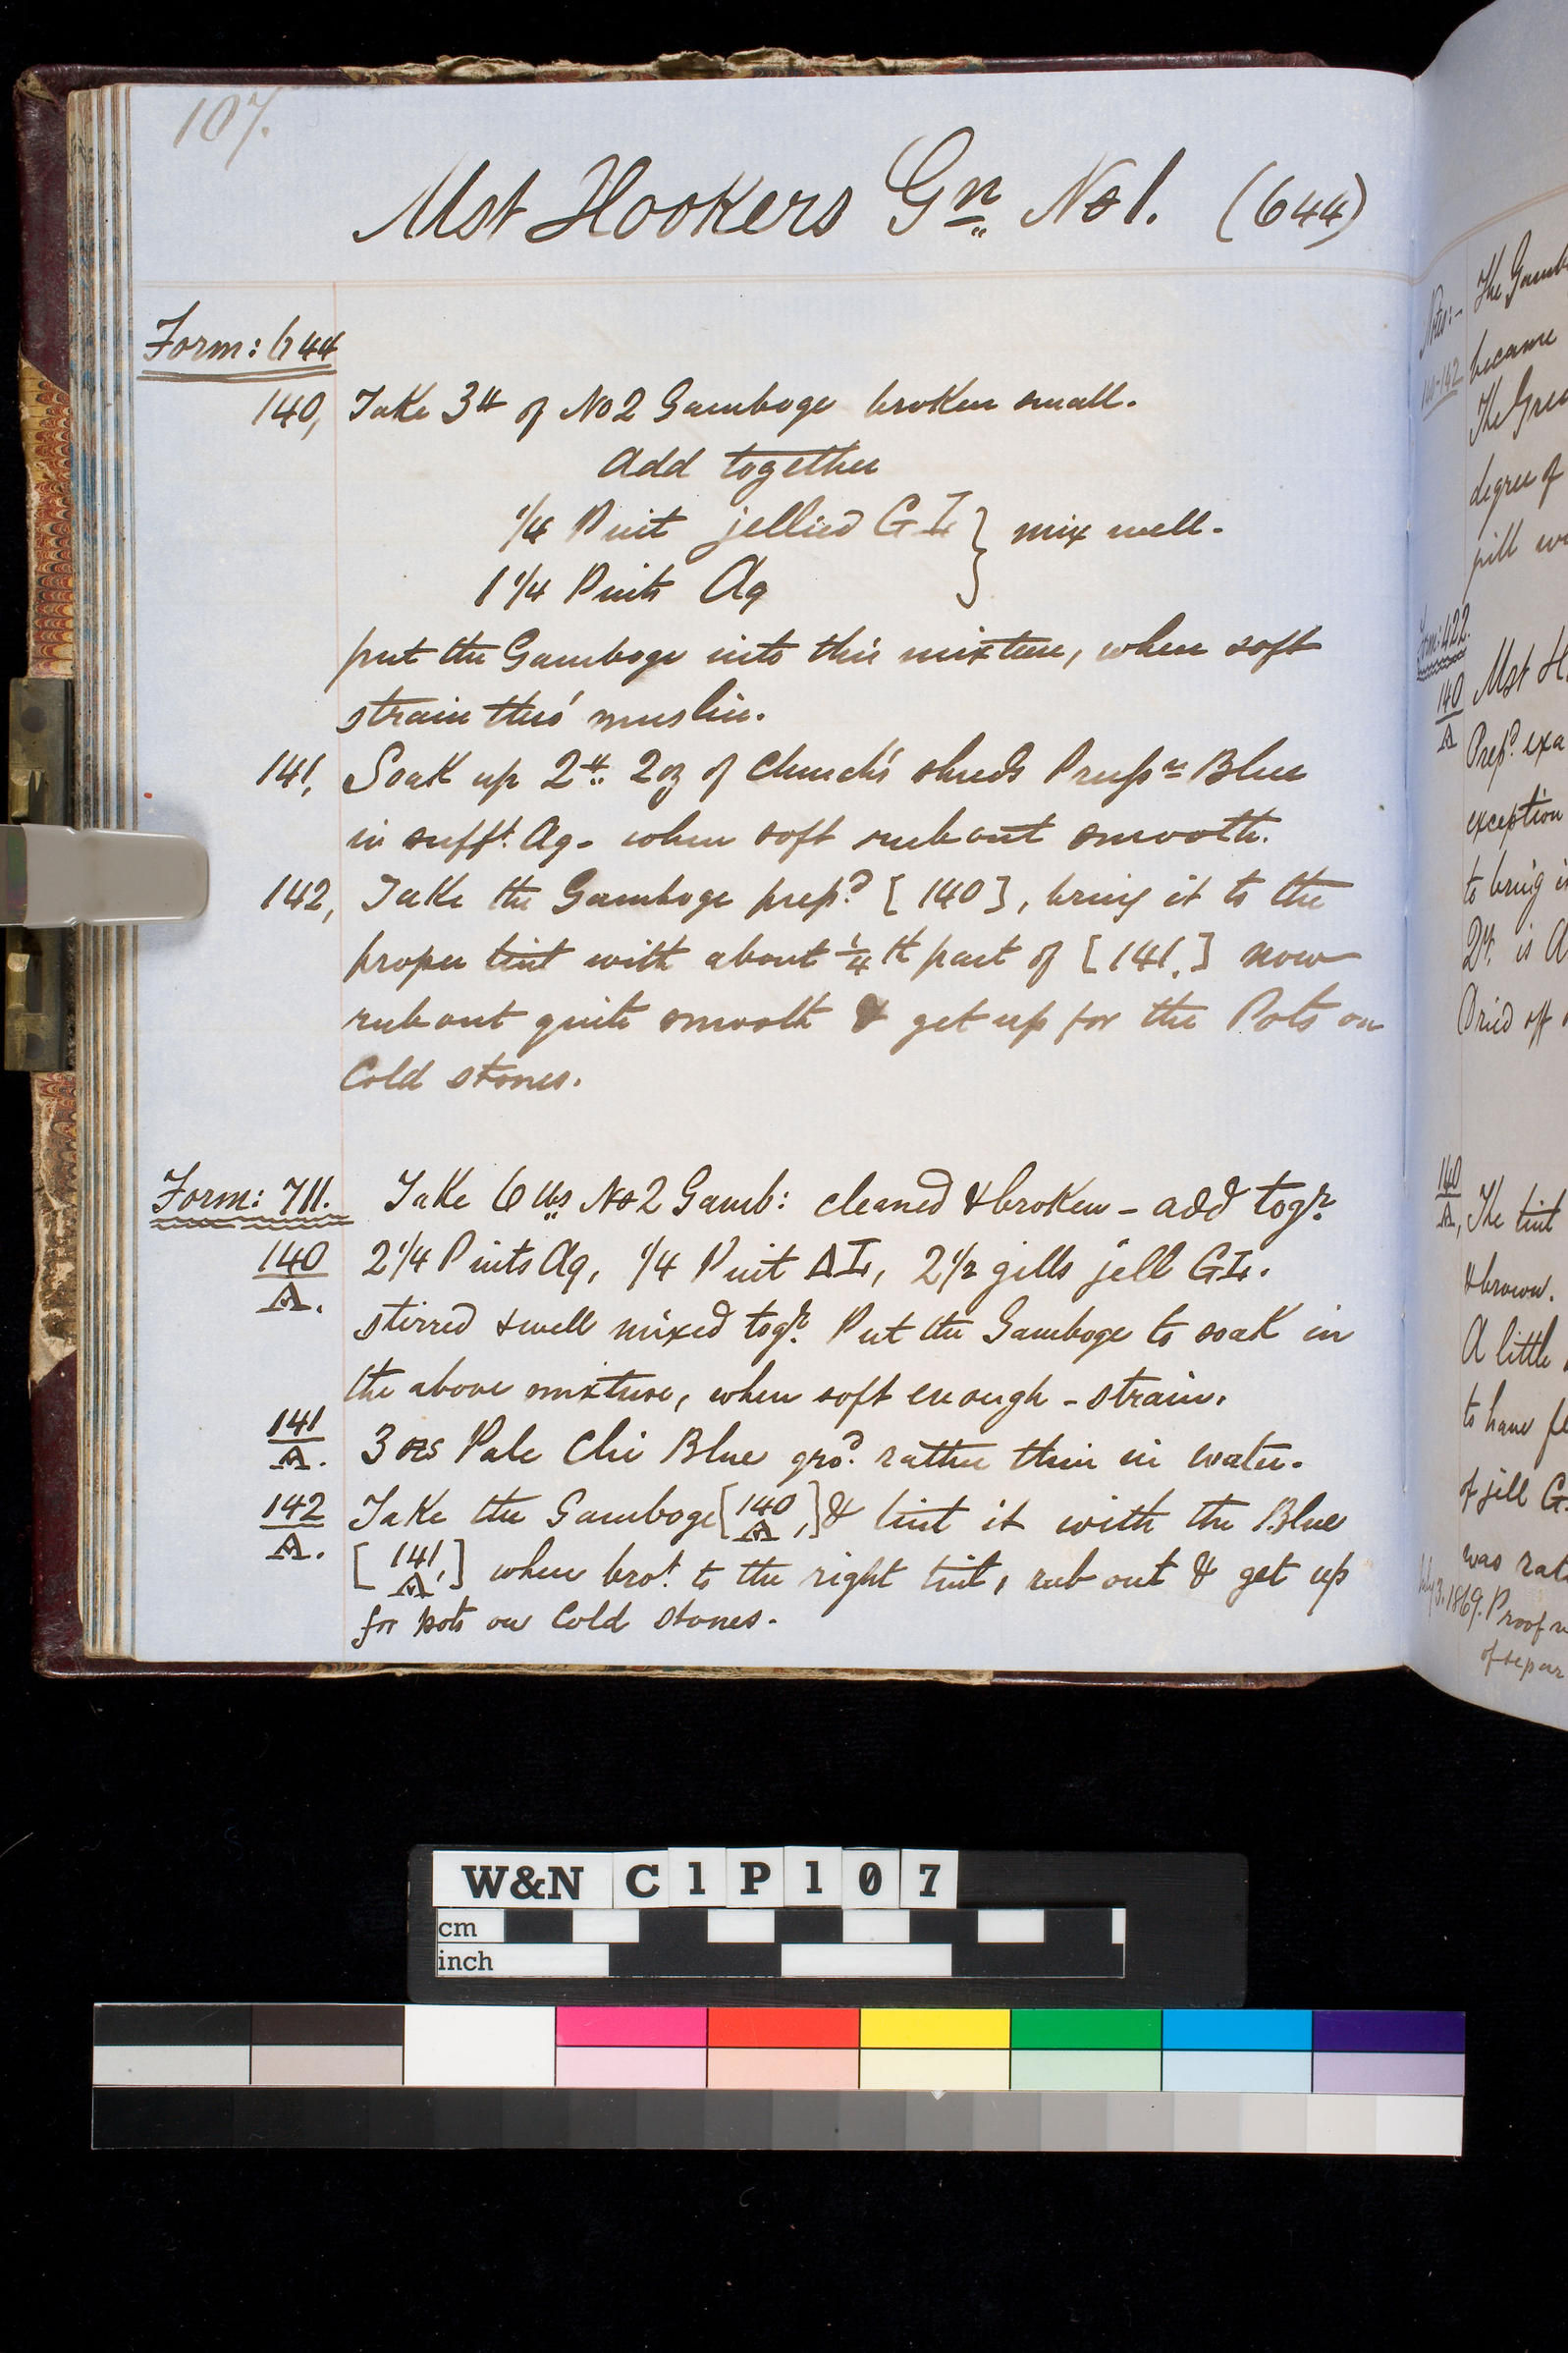 107.
Mst Hookers Gn No 1. (644)
Form: 644
140, Take 3 lb of No 2 Gamboge broken small.
Add together
1/4 Pint jellied G } mix well.
1 1/4 Pints Aq
put the Gamboge into this mixture, when soft
strain thro' muslin.
141, Soak up 2 lb. 2 oz of Church's shreds Prussn Blue
in sufft. Aq. when soft rub out smooth.
142, Take the Gamboge prepd. [140], bring it to the
proper tint with about 1/4 th part of [141.] now
rub out quite smooth & get up for the Pots on
Cold stones.
Form: 711. Take 6 lbs No 2 Gamb: cleaned & broken – add togr.
140/A. 2 1/4 Pints Aq, 1/4 Pint, 2 1/2 gills jell G.
stirred & well mixed togr. Put the Gamboge to soak in
the above mixture, when soft enough – strain.
141/A. 3 ozs Pale Chi Blue grod. rather thin in water.
142/A. Take the Gamboge [140/A,] & tint it with the Blue
[141,/A] when brot. to the right tint, rub out & get up
for pots on Cold stones.
Notes:-
The Gamb
140-142
became
The Gree
degree of
pill
Form: 422.
140/A
Mst H
Prepd. exa
exception
to bring i
is A
Dried off
140/A,
The tint
& brown.
A little
to have
of jell G
was rat
3. 1869. Proof
of separ
W&N C1P107
cm
inch